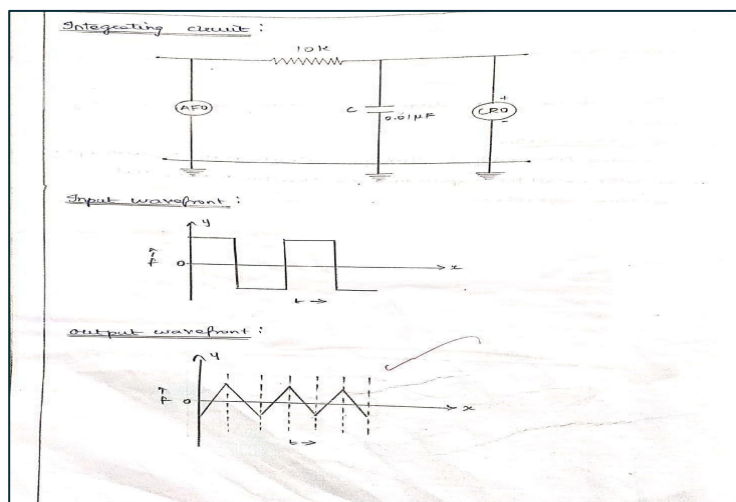 Integrating circuit :
10k
AFO
C
0.01μF
CRO
+
-
Input wavefront :
y
0
x
t →
output wavefront :
y
0
x
t →